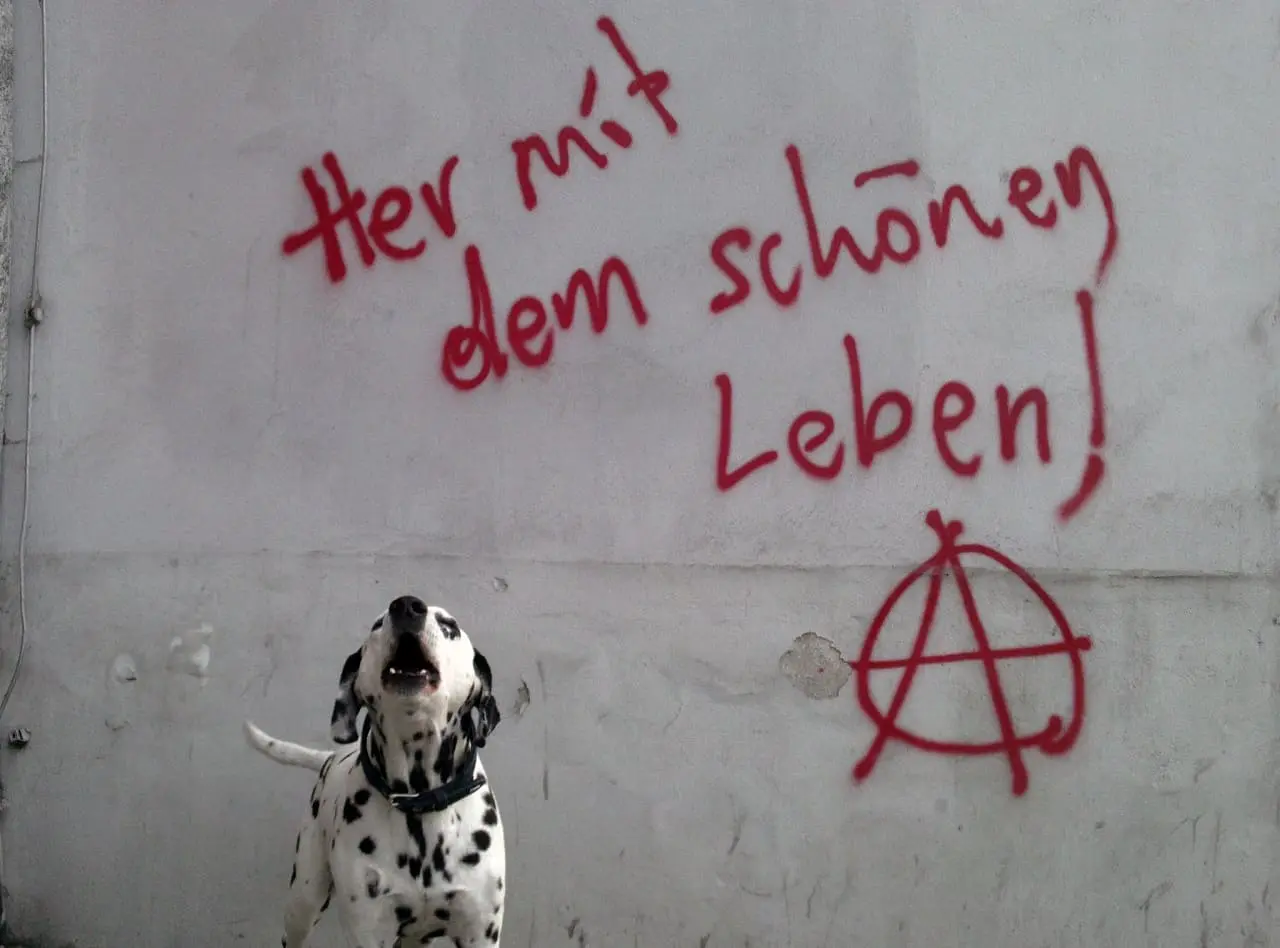 Her mit
dem schönen
Leben!